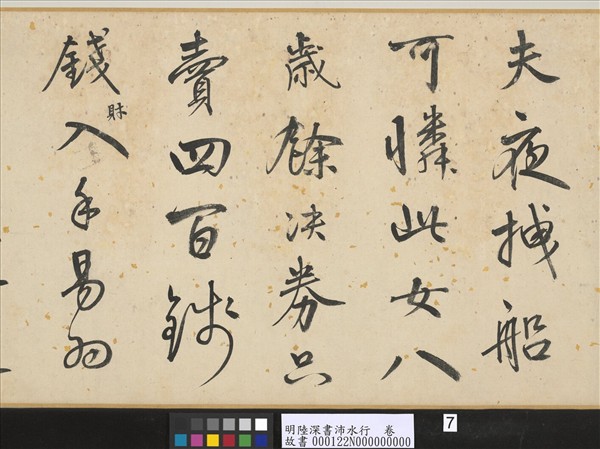 夫夜拽船
可憐此女八
歲餘决券只
賣四百錢
錢財入手易為
7
明陸深書沛水行 卷
故書 000122N000000000